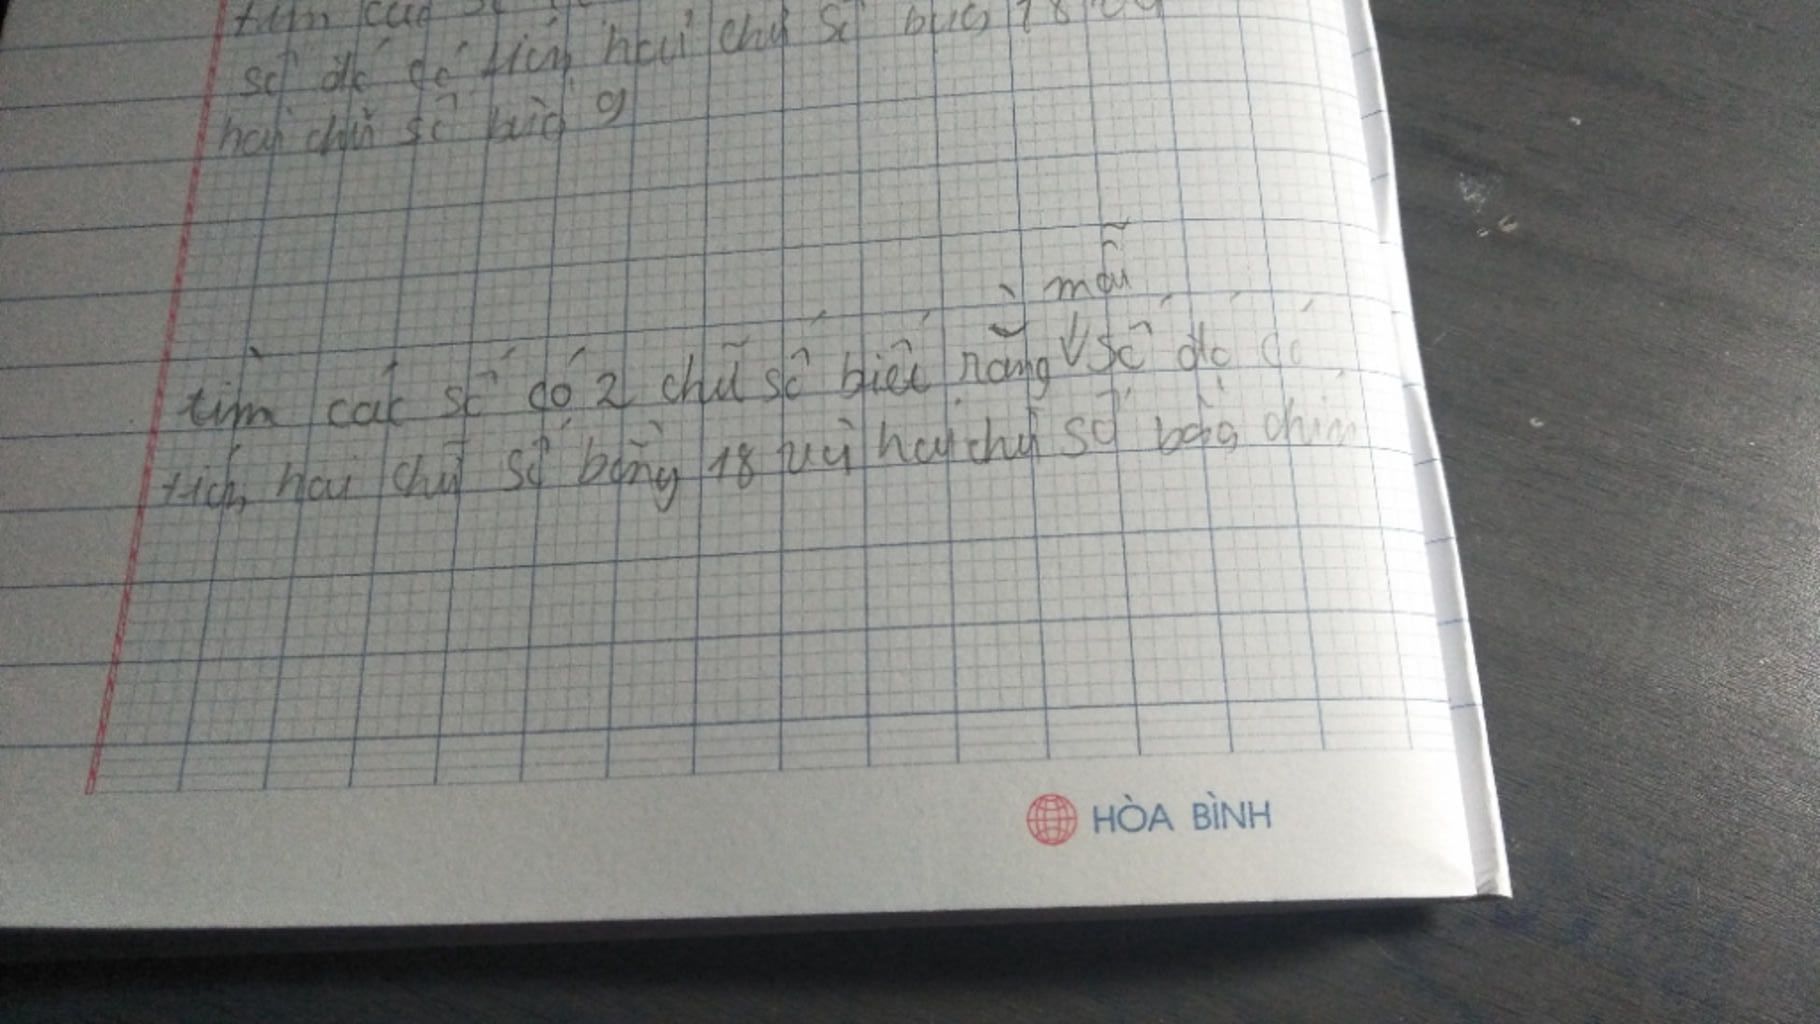 số đó có tích hai chữ số bằng 18 và
hai chữ số bằng 9
mỗi
tìm các số có 2 chữ số biết rằng số đó có
tích hai chữ số bằng 18 và hai chữ số bằng chín
HÒA BÌNH